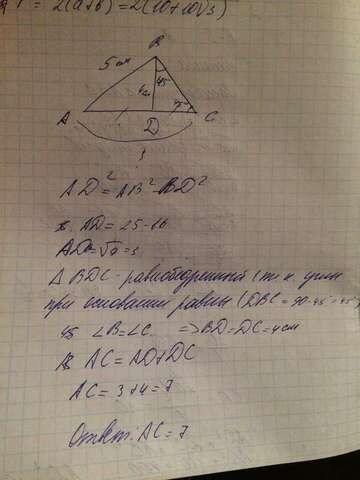 P = 2(a+b) = 2(10+10√3)
B
5 см
45
4см
45
A
D
C
3
AD² = AB² - BD²
AD = 25-16
AD = √9 = 3
Δ BDC - равнобедренный (т.к. углы
при основании равны (DBC = 90-45 = 45°)
∠B = ∠C => BD = DC = 4 см
AC = AD + DC
AC = 3+4 = 7
Ответ: AC = 7